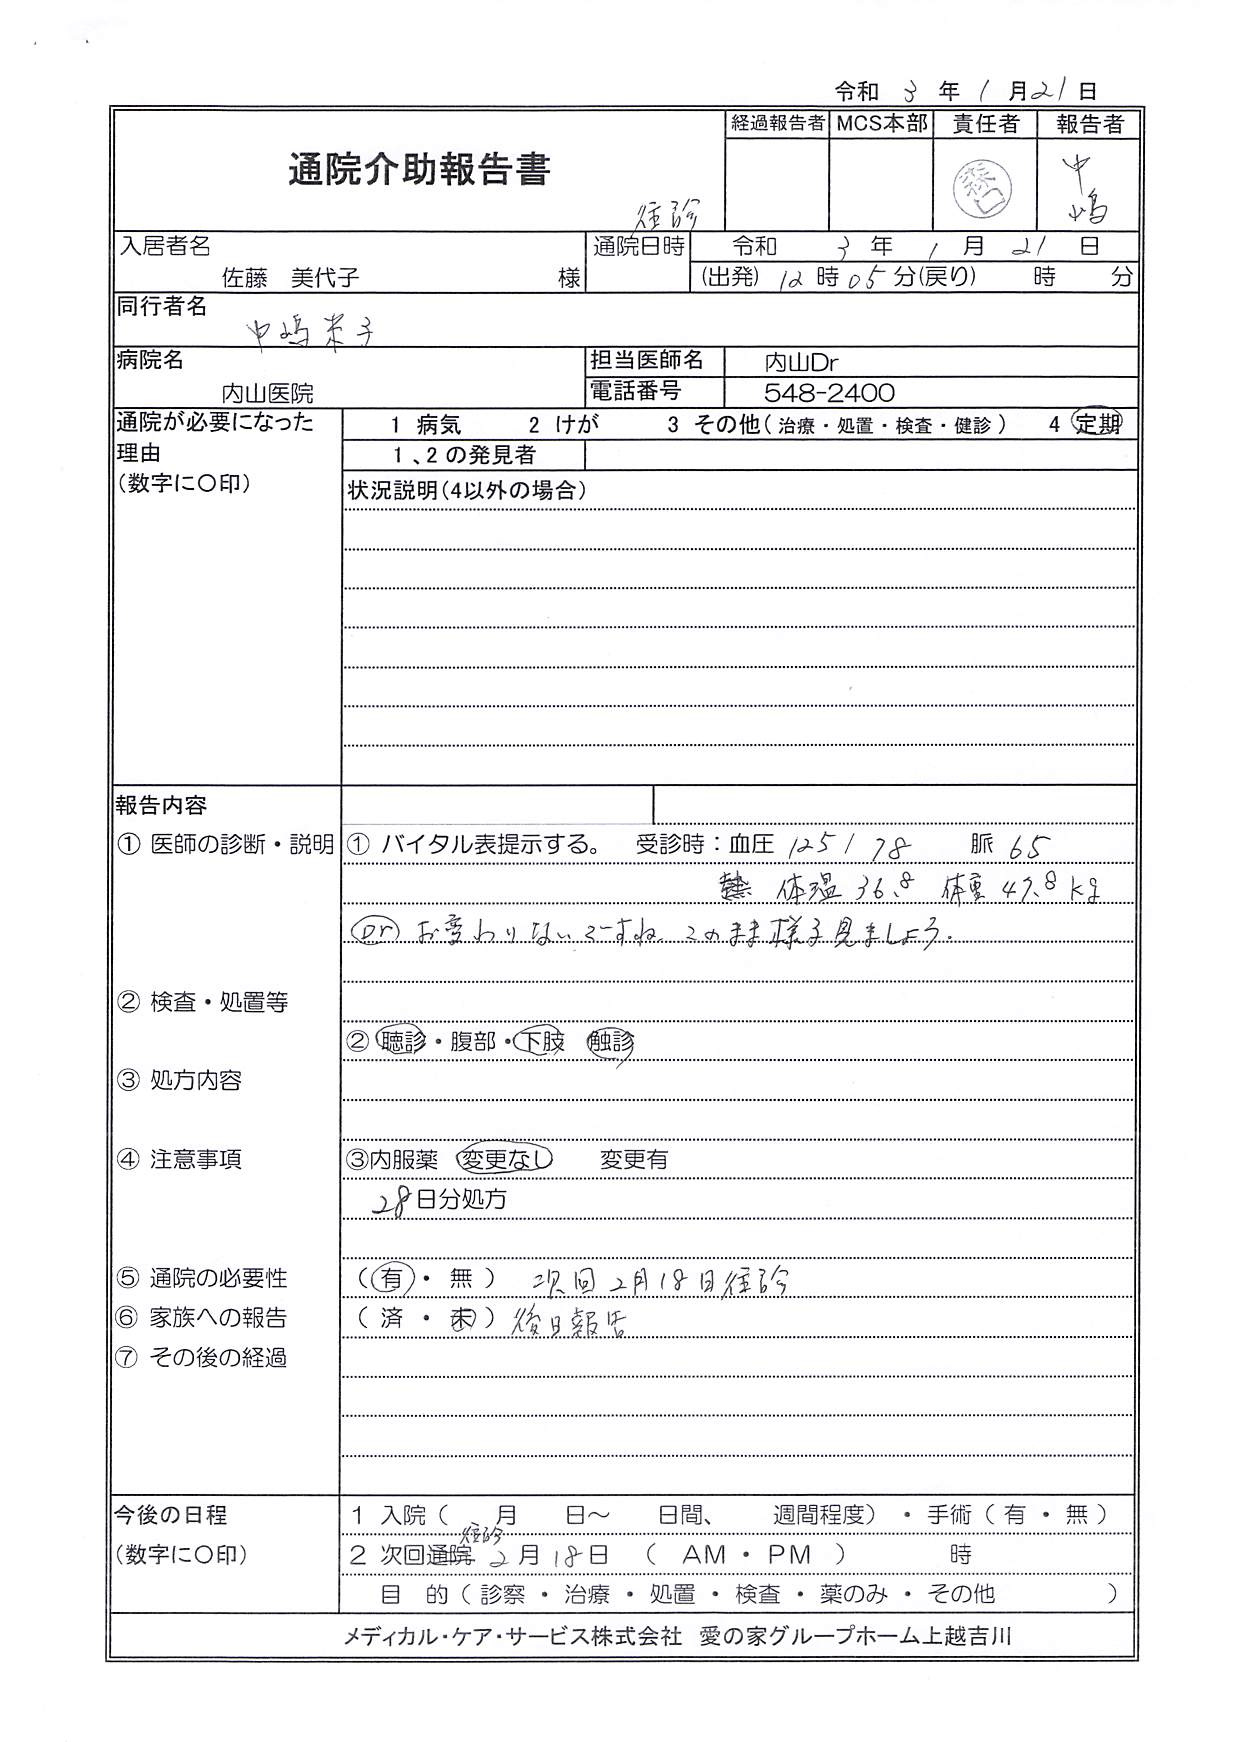 令和 3 年 1 月 21 日
経過報告者 MCS本部 責任者 報告者
通院介助報告書
森口
中嶋
往診
入居者名
佐藤 美代子 様
通院日時 令和 3 年 1 月 21 日
(出発) 12 時 05 分(戻り) 時 分
同行者名
中嶋栄子
病院名
内山医院
担当医師名 内山Dr
電話番号 548-2400
通院が必要になった
理由
(数字に〇印)
1 病気 2 けが 3 その他(治療・処置・検査・健診) 4 定期
1、2の発見者
状況説明(4以外の場合)
報告内容
① 医師の診断・説明
① バイタル表提示する。 受診時:血圧 125/78 脈 65
体温 36.8 体重 47.8 kg
Dr お変わりないですね。このまま様子見ましょう。
② 検査・処置等
② 聴診・腹部・下肢 触診
③ 処方内容
④ 注意事項
③内服薬 変更なし 変更有
28日分処方
⑤ 通院の必要性 (有・無) 次回2月18日往診
⑥ 家族への報告 (済・未) 後日報告
⑦ その後の経過
今後の日程
(数字に〇印)
1 入院( 月 日～ 日間、 週間程度)・手術(有・無)
往診
2 次回通院 2月18日 (AM・PM) 時
目 的(診察・治療・処置・検査・薬のみ・その他 )
メディカル・ケア・サービス株式会社 愛の家グループホーム上越吉川